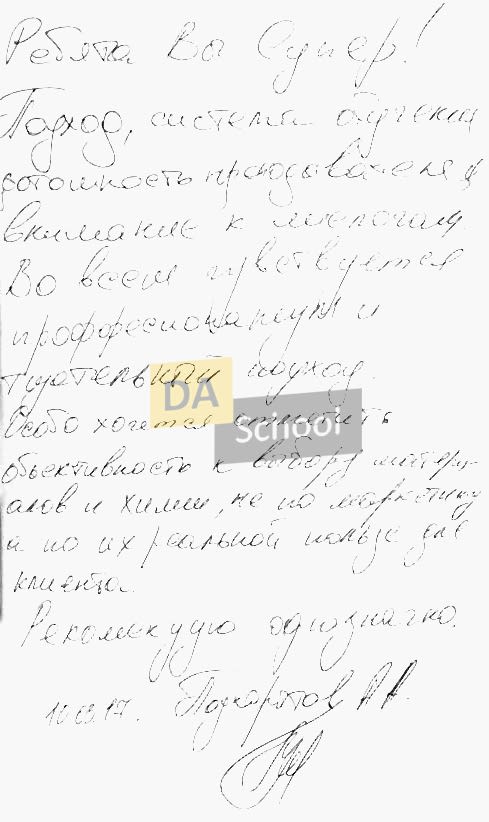 Ребята Вы Супер!
Подход, система обучения
дотошность преподавателя и
внимание к мелочам.
Во всем чувствуется
проффесионализм и
тщательный подход.
DA
School
Особо хочется отметить
объективность к выбору матери-
алов и химии, не по маркетингу
а по их реальной пользе для
клиента.
Рекомендую однозначно.
А.А.